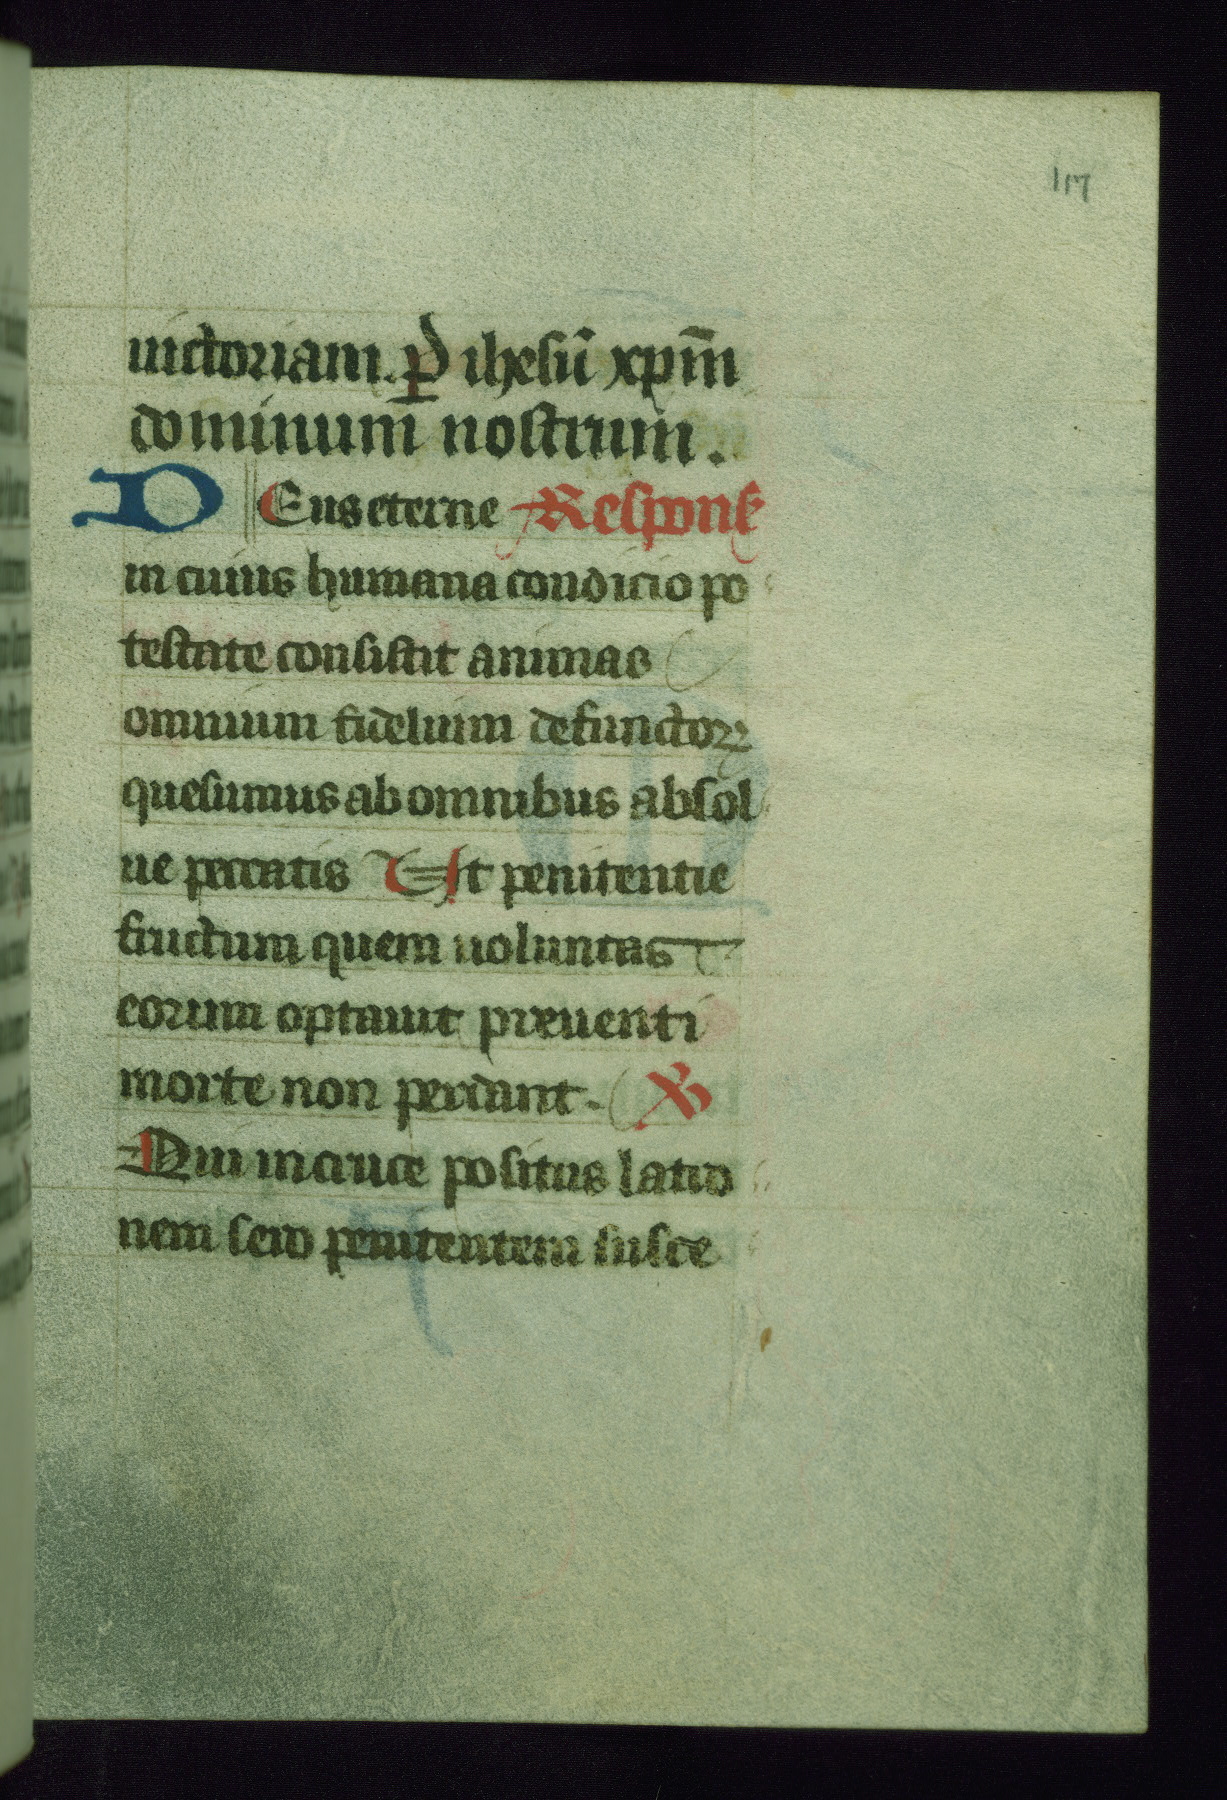 117
uictoriam. p ihesū xpm̄
dominum nostrum.
DEus eterne Respons
in cuius humana condicio po
testate consistit animas
omnium fidelium defunctoꝝ
quesumus ab omnibus absol
ue peccatis Ut penitentie
fructum quem uoluntas
eorum optauit preuenti
morte non perdant. V
Qui in cruce positus latro
nem sero penitentem susce